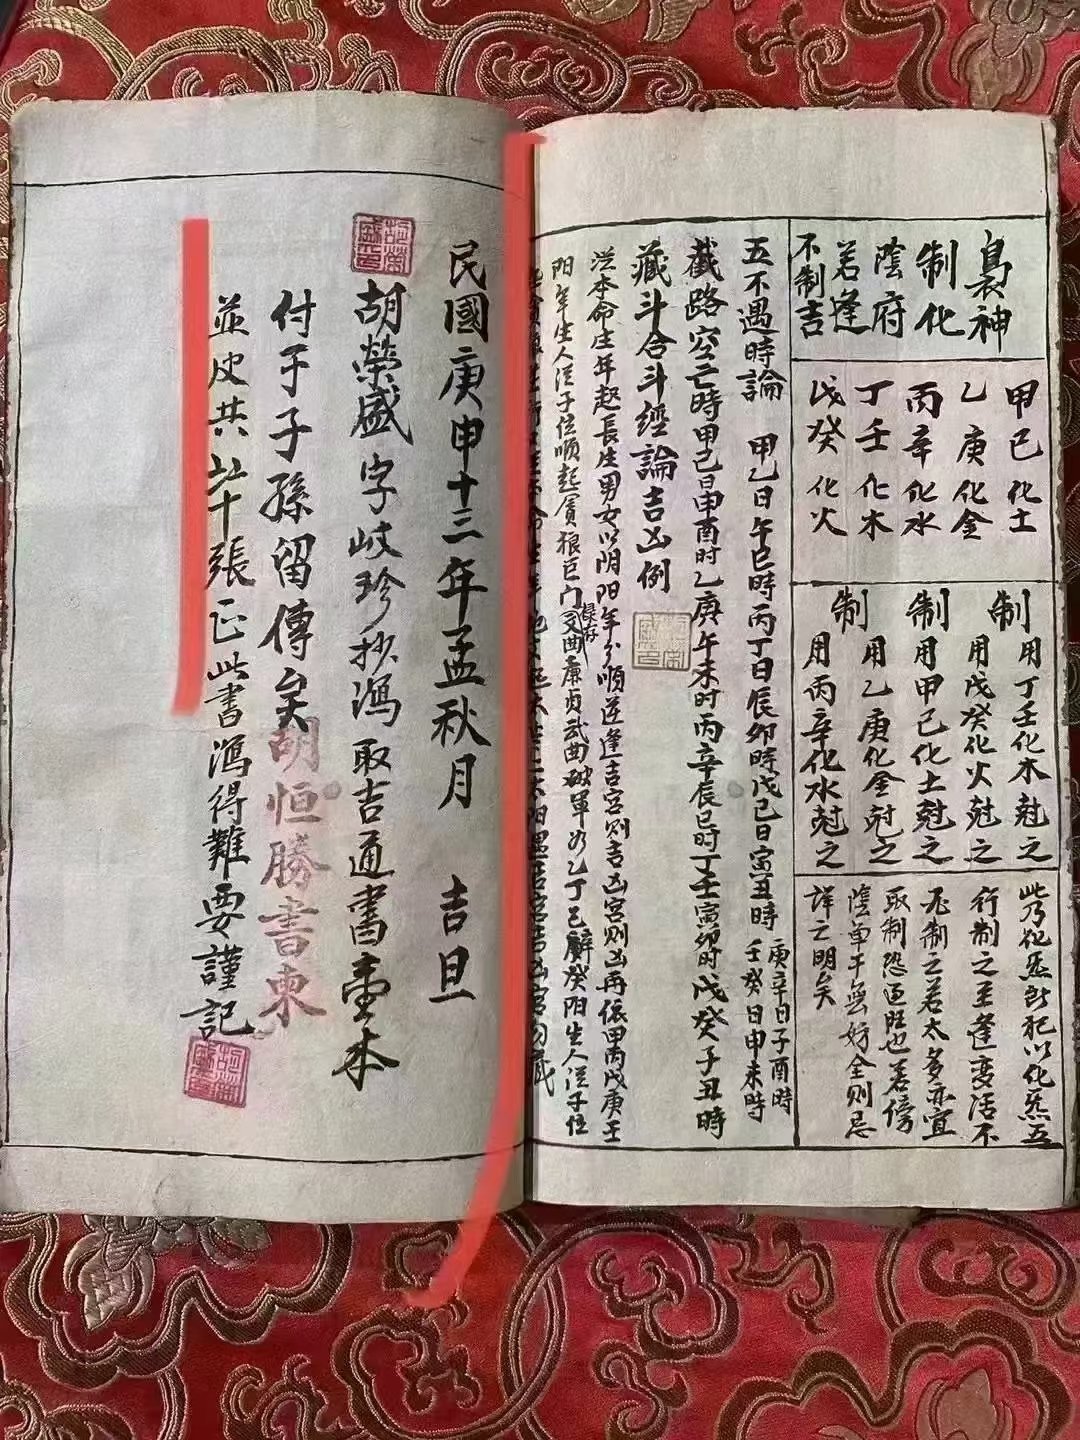 裊神
制化
陰府
若逢
不制吉
甲己化土
乙庚化金
丙辛化水
丁壬化木
戊癸化火
制用丁壬化木尅之
用戊癸化火尅之
制用甲己化土尅之
用乙庚化金尅之
制用丙辛化水尅之
此乃化炁所犯以化炁五
行制之至逢变活不
冗制之若太多亦宜
取制恐逗旺也若傍
陰单干無妨全則忌
詳之明矣
五不遇時論 甲乙日午巳時丙丁日辰卯時戊己日寅丑時 庚辛日子酉時
壬癸日申未時
截路空亡時甲己日申酉时乙庚午未时丙辛辰巳时丁壬寅卯时戊癸子丑時
藏斗合斗經論吉凶例
從本命生年起長生男女以阴阳年分順逆逢吉宮則吉凶宮則凶再依甲丙戊庚壬
阳年生人從子位順起贪狼巨门禄存文曲廉贞武曲破軍
民國庚申十三年孟秋月 吉旦
胡榮盛字岐珍抄瀉取吉通書壹本
付于子孫留傳矣
胡恒勝書柬
並皮共六十張正此書瀉得難要謹記